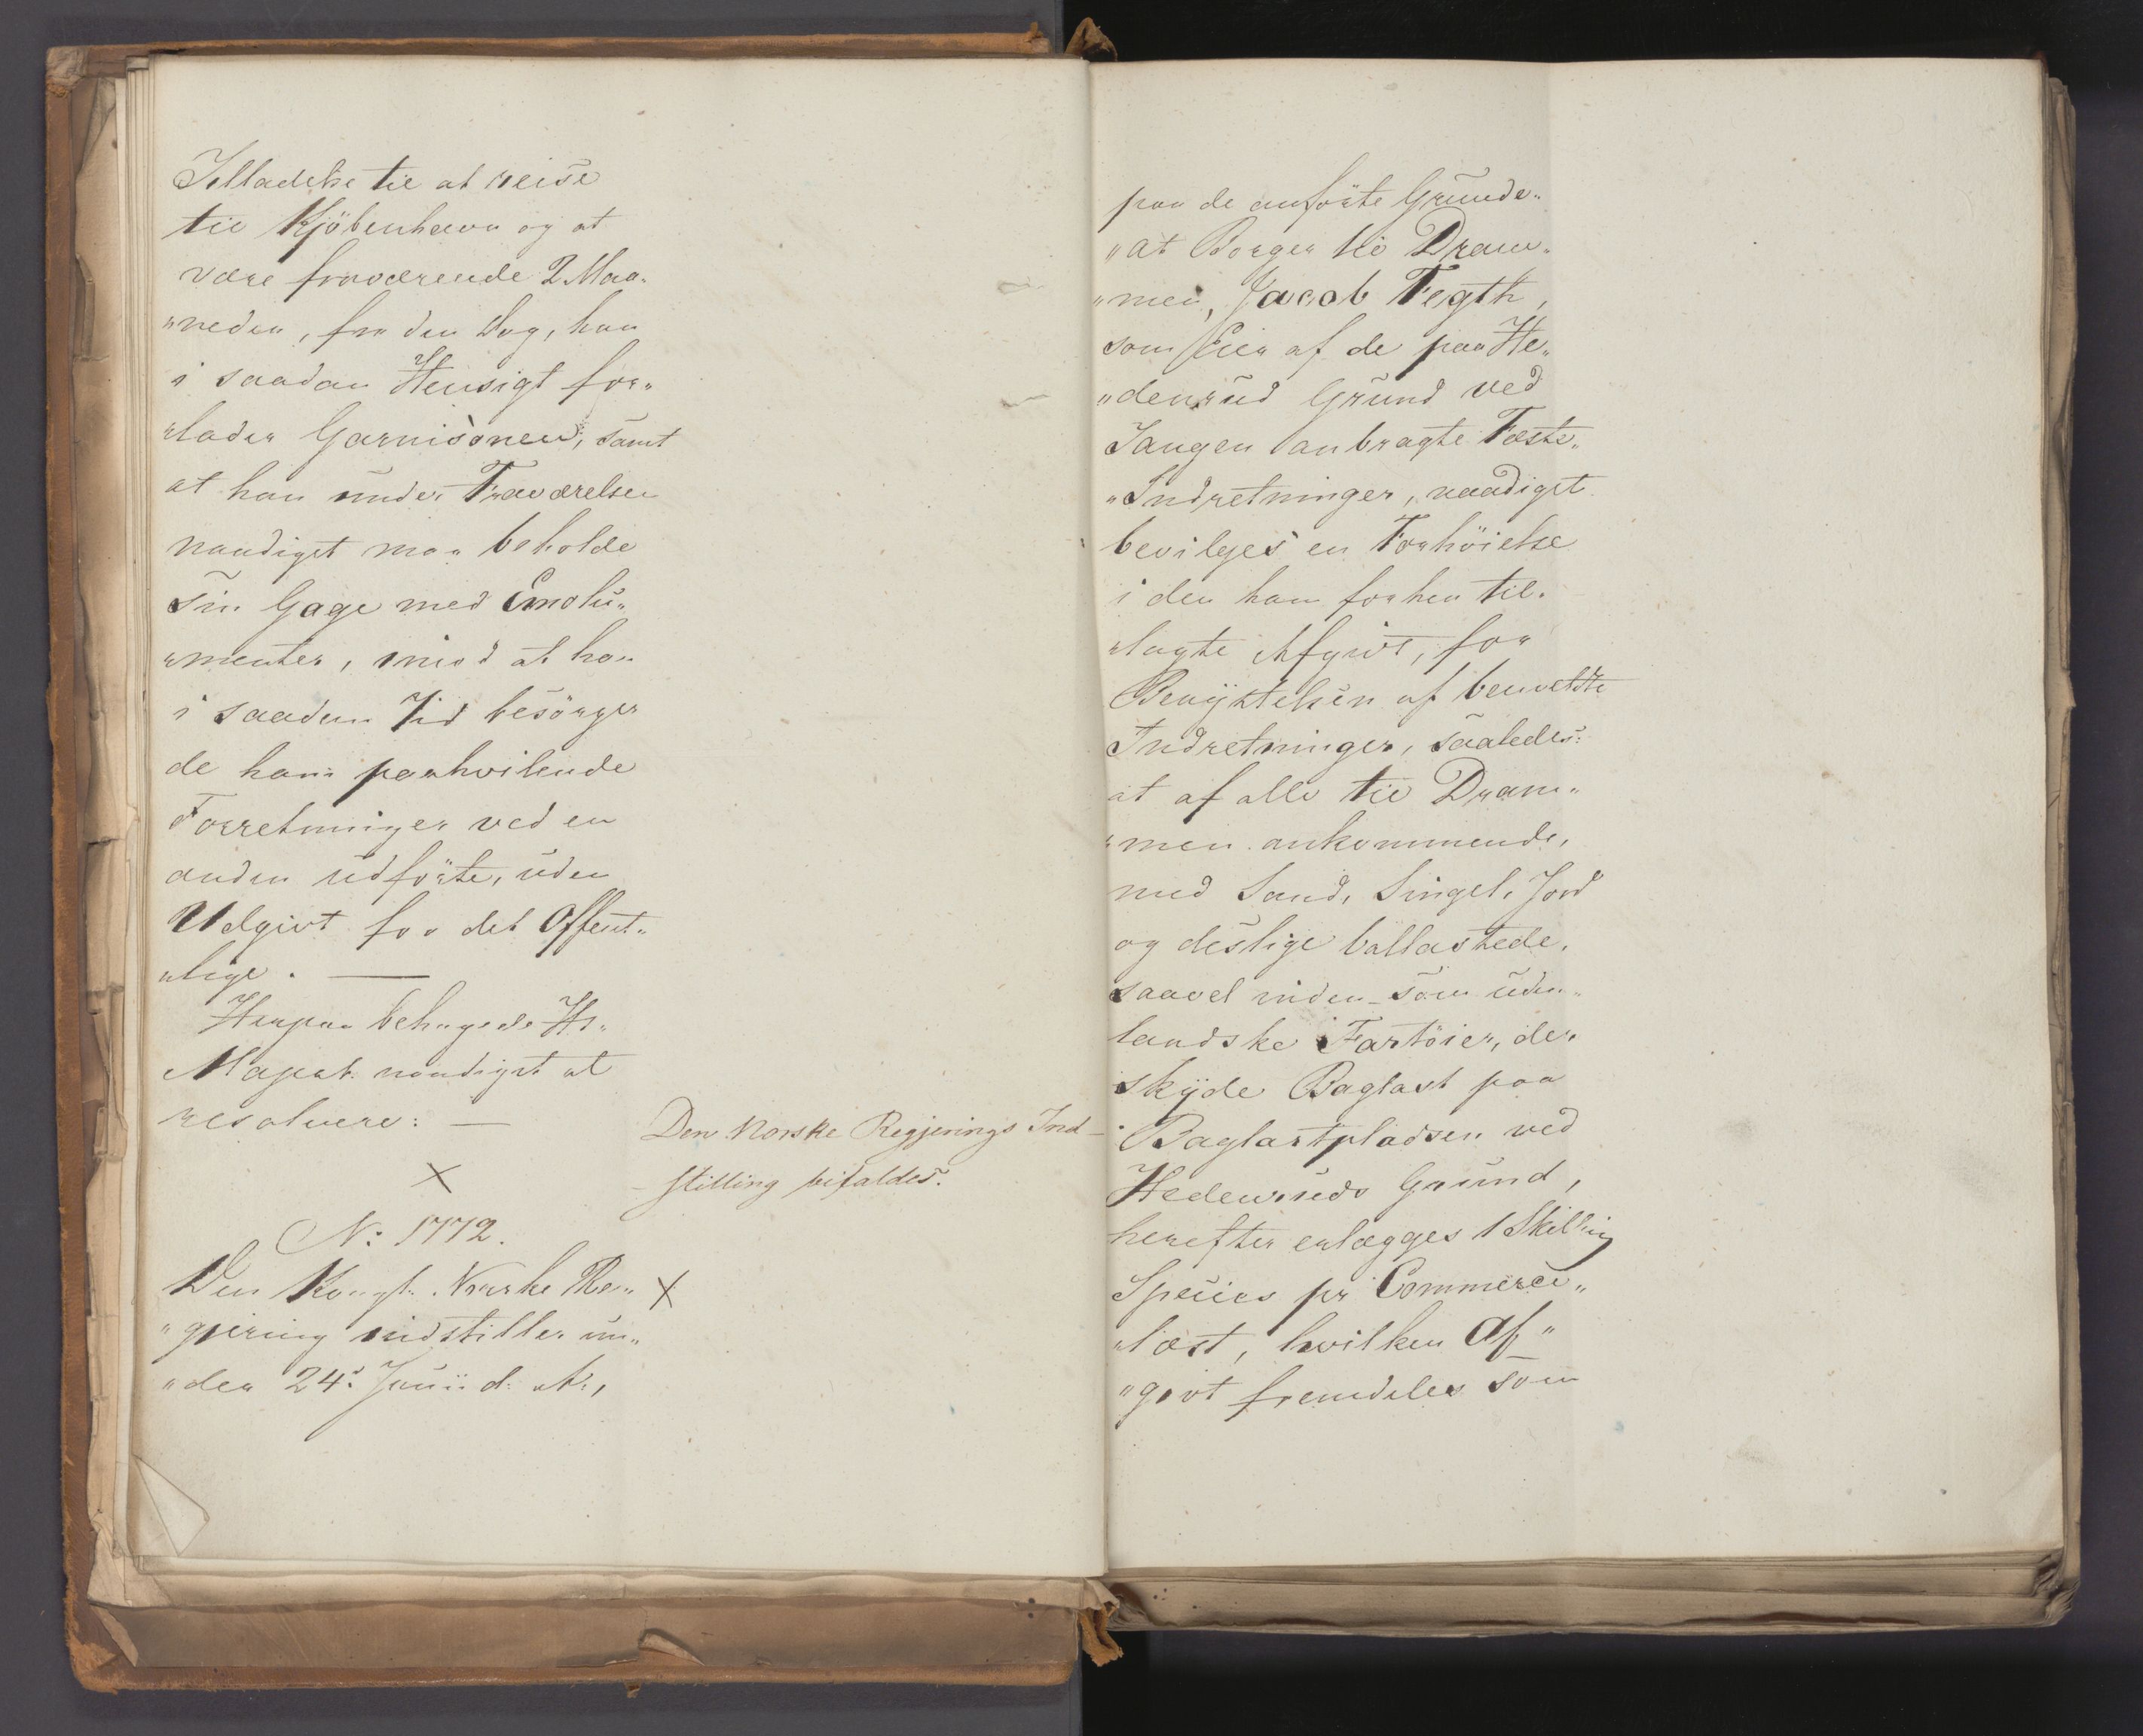 Tilladelse til at reise
til Kjöbenhavn og at
være fraværende 2 Maa„
„neder, fra den Dag, han
i saadan Hensigt for„
„lader Garnisonen, samt
at han under Fraværelsen
naadigst maa beholde
sin Gage med Emolu„
„menter, imod at han
i saadan Tid besörger
de ham paahvilende
Forretninger ved en
anden udförte, uden
Udgivt for det Offent„
„lige. —
Herpaa behagede Hs.
Majest. naadigst at
resolvere: —
Den Norske Regjerings Ind-
stilling bifaldes.
X
No: 1772.
Den Kongl. Norske Re„ X
„gjering indstiller un„
„der 24de Junii d. A.,
paa de anförte Grunde„
„at Borger til Dram„
„men, Jacob Fegth,
som Eier af de paa He„
„denrud Grund ved
Tangen anbragte Fæste„
„Indretninger, naadigst
bevilges en Forhöielse
i den ham forhen til„
„lagte Afgivt, for
Benÿttelsen af bemeldte
Indretninger, saaledes:
at af alle til Dram„
„men ankommende,
med Sand, Singel, Jord
og deslige ballastede,
saavel inden- som uden„
landske Fartöier, der
skÿde Baglast paa
Baglastpladsen ved
Hedenruds Grund,
herefter erlægges 1 Skilling
Species pr Commerce„
„læst, hvilken Af„
„givt fremdeles som